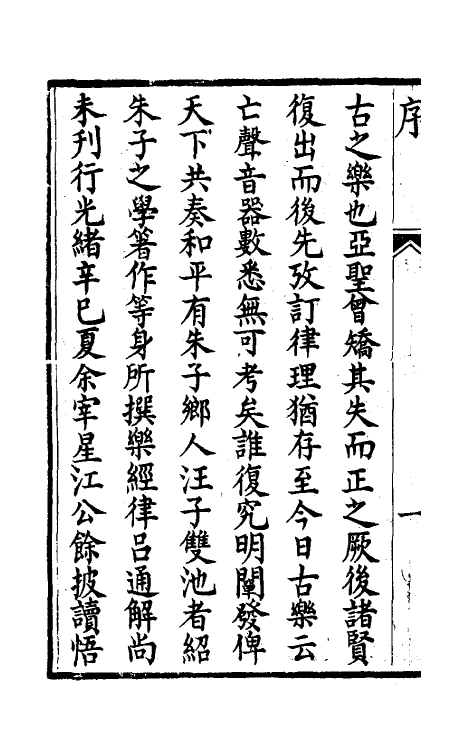 序
一
古之樂也亞聖曾矯其失而正之厥後諸賢
復出而後先攷訂律理猶存至今日古樂云
亡聲音器數悉無可考矣誰復究明闡發俾
天下共奏和平有朱子鄉人汪子雙池者紹
朱子之學箸作等身所撰樂經律呂通解尚
未刊行光緒辛巳夏余宰星江公餘披讀悟